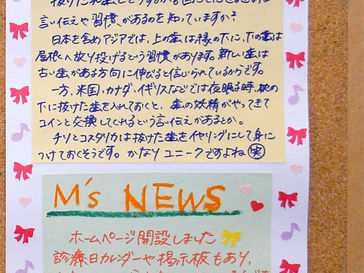 言い伝えや習慣があるのを知っていますか?
日本を含めアジアでは、上の歯は縁の下に、下の歯は
屋根へ放り投げるという習慣があります。新しい歯は
古い歯がある方向に伸びると信じられているからです。
一方、米国・カナダ・イギリスなどでは夜眠る時、枕の
下に抜けた歯を入れておくと、歯の妖精がやってきて
コインと交換してくれるという言い伝えがあるとか。
チリとコスタリカは抜けた歯をイヤリングにして身に
つけておくそうです。かなりユニークですよね(笑)
M's NEWS
ホームページ開設しました
診療日カレンダーや掲示板もあり、